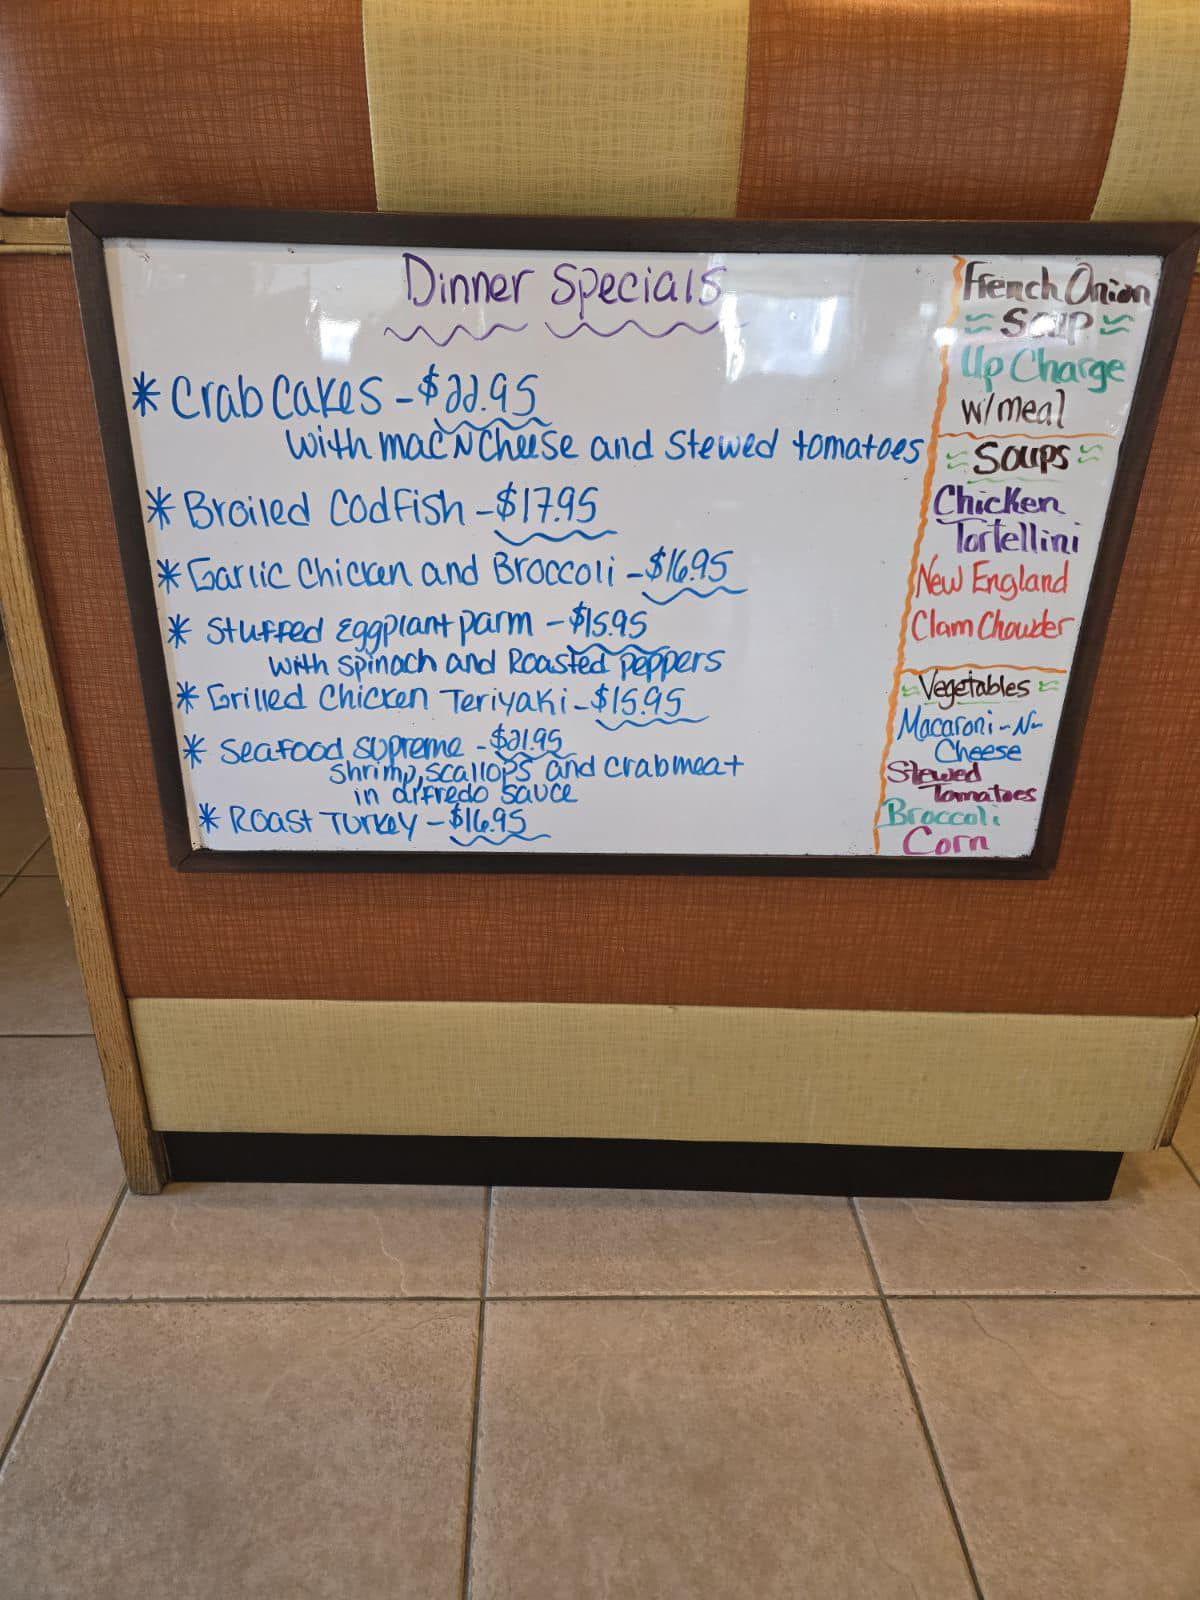 Dinner Specials
* Crab Cakes - $22.95
with mac N Cheese and Stewed tomatoes
* Broiled Codfish - $17.95
* Garlic Chicken and Broccoli - $16.95
* Stuffed Eggplant parm - $15.95
with spinach and Roasted peppers
* Grilled Chicken Teriyaki - $15.95
* Seafood supreme - $21.95
Shrimp, scallops and crabmeat
in alfredo sauce
* Roast Turkey - $16.95
French Onion
Soup
Up Charge
w/meal
Soups
Chicken
Tortellini
New England
Clam Chowder
Vegetables
Macaroni-N-
Cheese
Stewed
Tomatoes
Broccoli
Corn